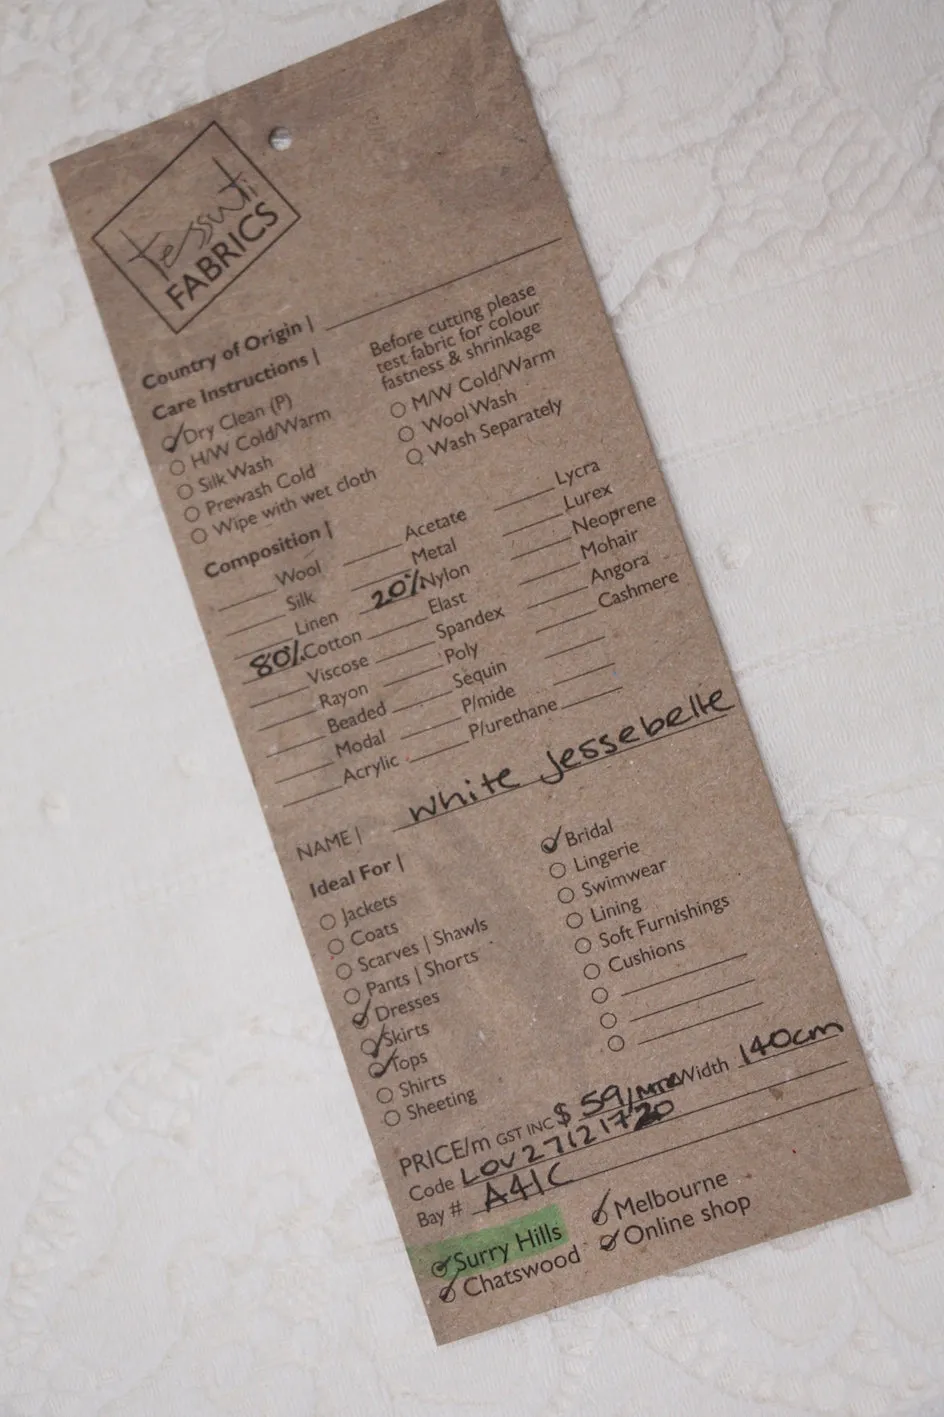 tessuti
FABRICS
Country of Origin |
Care Instructions |
Dry Clean (P)
H/W Cold/Warm
Silk Wash
Prewash Cold
Wipe with wet cloth
Before cutting please
test fabric for colour
fastness & shrinkage
M/W Cold/Warm
Wool Wash
Wash Separately
Composition |
Wool
Silk
Linen
80% Cotton
Viscose
Rayon
Beaded
Modal
Acrylic
Acetate
Metal
20% Nylon
Elast
Spandex
Poly
Sequin
P/mide
P/urethane
Lycra
Lurex
Neoprene
Mohair
Angora
Cashmere
NAME | white jessebelle
Ideal For |
Jackets
Coats
Scarves | Shawls
Pants | Shorts
Dresses
Skirts
Tops
Shirts
Sheeting
Bridal
Lingerie
Swimwear
Lining
Soft Furnishings
Cushions
PRICE/m GST INC $ 59/MTR Width 140cm
Code
Bay # A41C
Surry Hills
Chatswood
Melbourne
Online shop